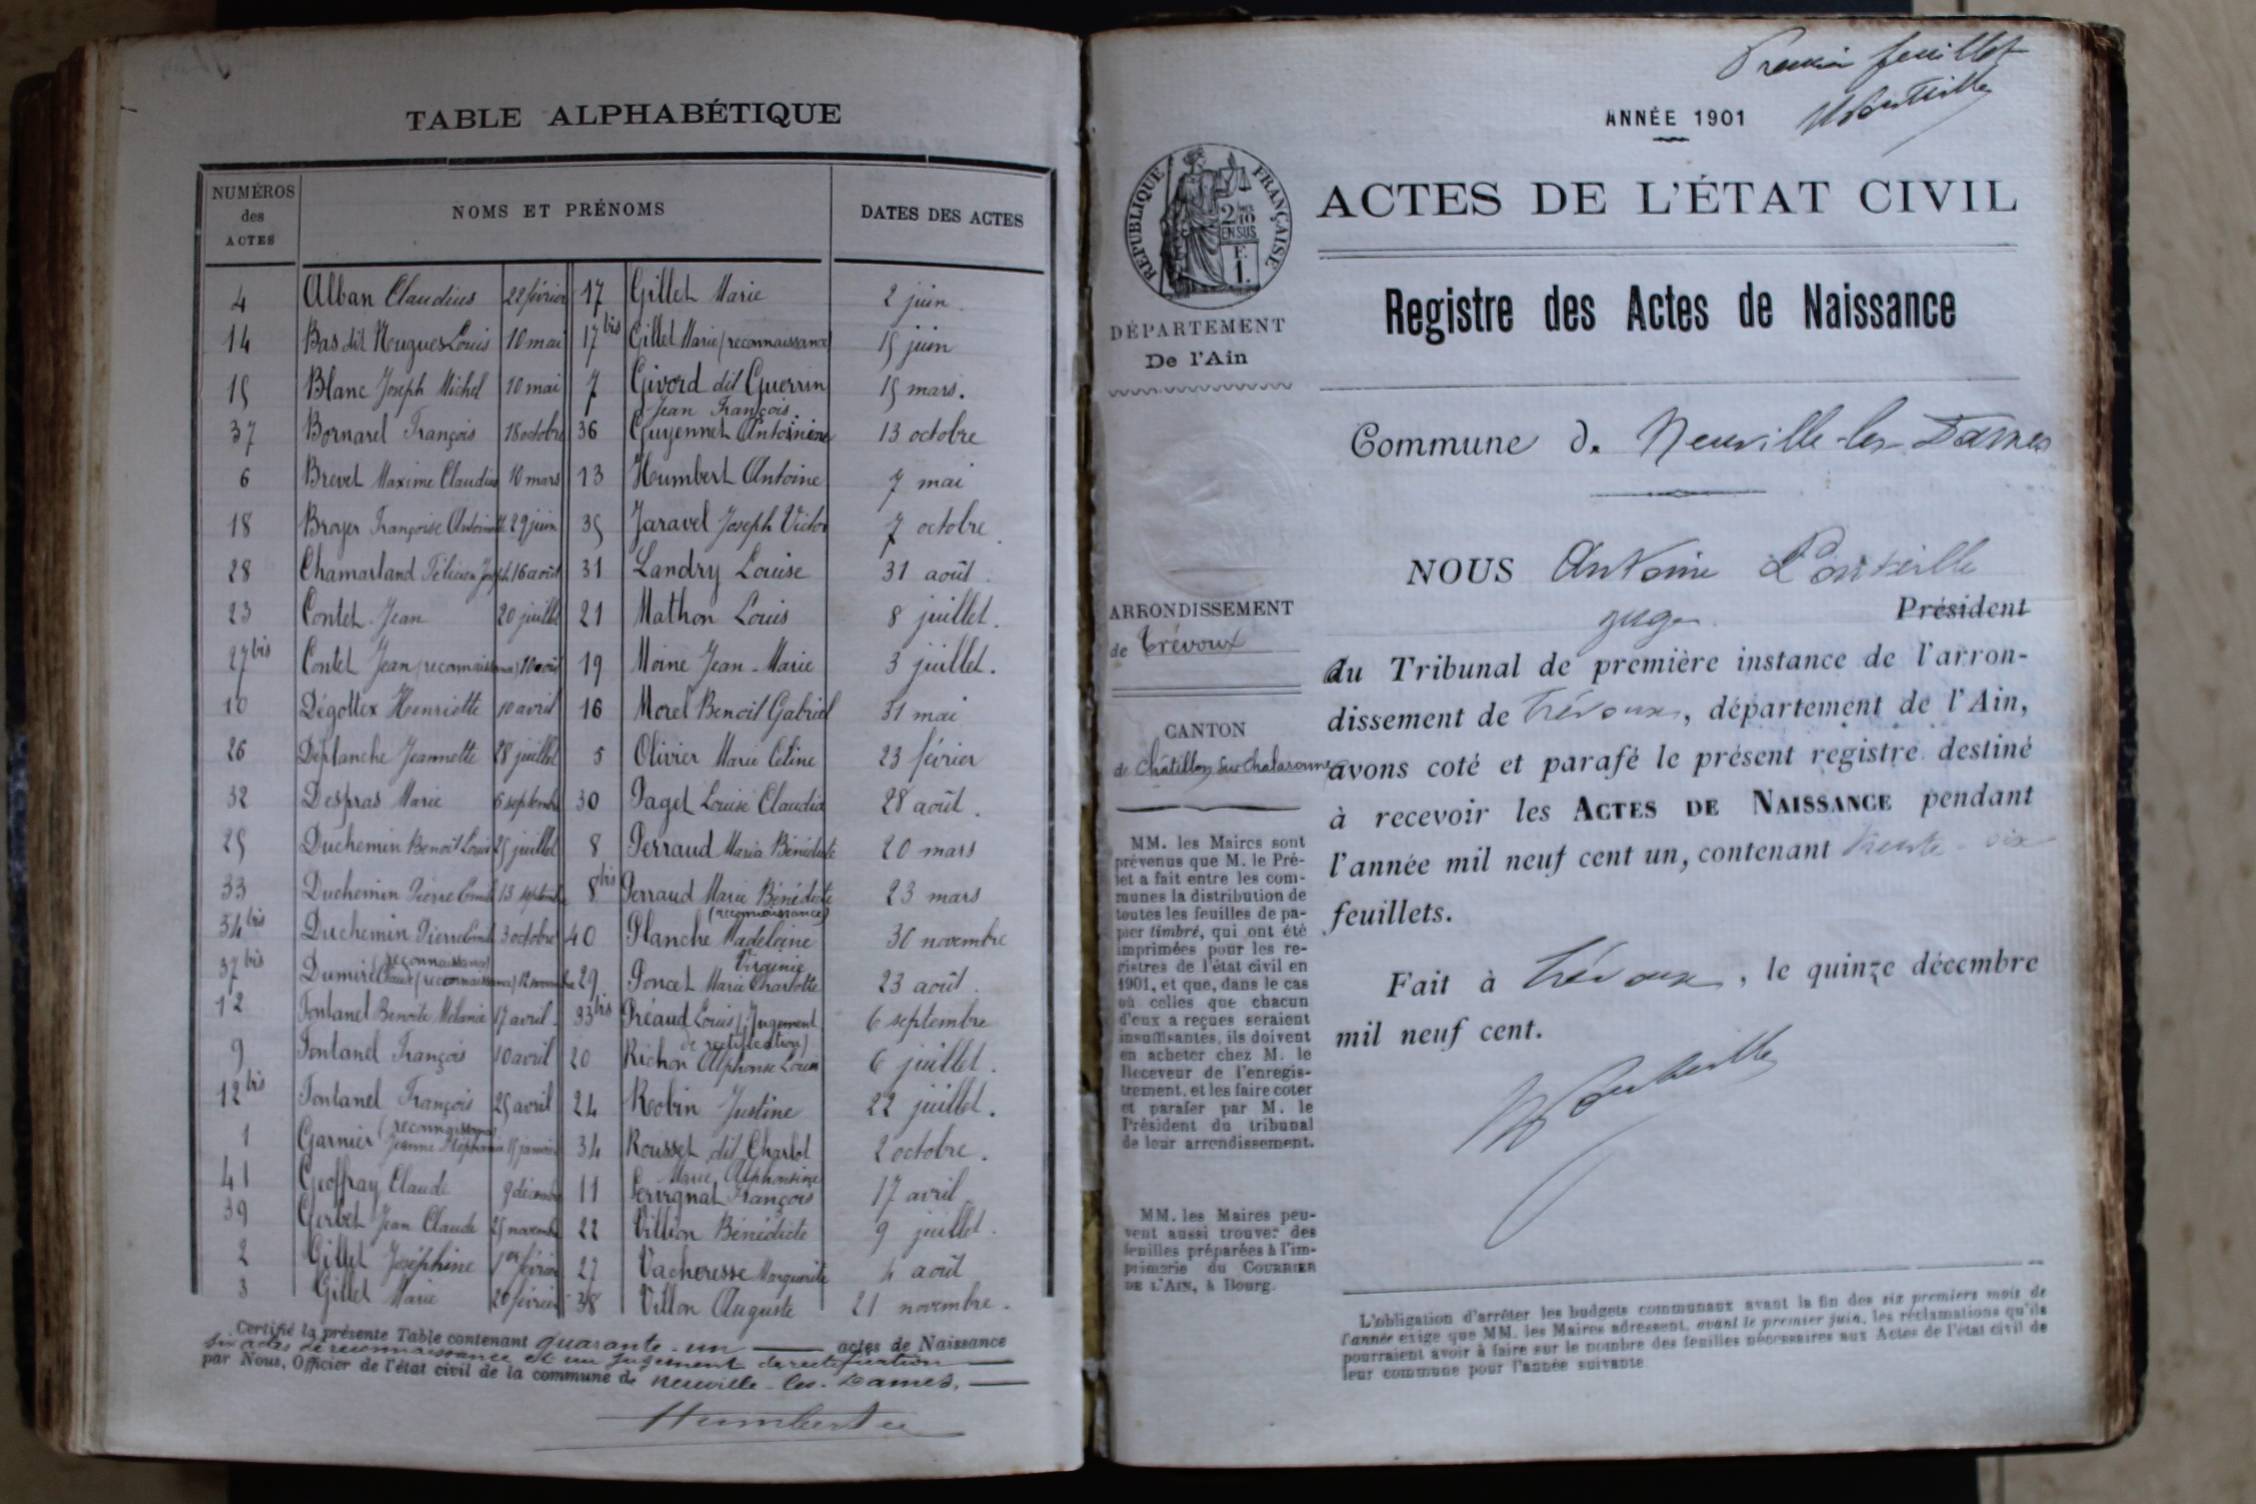 TABLE ALPHABÉTIQUE
NUMÉROS des ACTES | NOMS ET PRÉNOMS | DATES DES ACTES
4 Alban Claudius 22 février 17 Gillet Marie 2 juin
14 Bas dit Nougues Louis 10 mai 17 bis Gillet Marie (reconnaissance) 15 juin
15 Blanc Joseph Michel 10 mai 7 Givord dit Guerrin Jean François 15 mars.
37 Bornarel François 18 octobre 36 Guyennet Antoinine 13 octobre
6 Brevet Maxime Claudius 10 mars 13 Humbert Antoine 7 mai
18 Broyer Françoise Antoinette 29 juin 35 Jaravel Joseph Victor 7 octobre.
28 Chamarland Félicien Joseph 16 août 31 Landry Louise 31 août.
23 Contet Jean 20 juillet 21 Mathon Louis 8 juillet.
27 bis Contet Jean (reconnaissance) 10 août 19 Moine Jean-Marie 3 juillet.
10 Dégottex Henriette 10 avril 16 Morel Benoit Gabriel 31 mai
26 Deplanche Jeannette 28 juillet 5 Olivier Marie Céline 23 février
32 Despras Marie 6 septembre 30 Paget Louise Claudia 28 août.
25 Duchemin Benoit Louis 25 juillet 8 Perraud Maria Bénédicte 20 mars
33 Duchemin Pierre 13 septembre 8 bis Perraud Marie Bénédicte (reconnaissance) 23 mars
34 bis Duchemin Pierre (reconnaissance) 3 octobre 40 Planche Madeleine Virginie 30 novembre
37 bis Dumiré Claude (reconnaissance) 12 novembre 29 Poncet Marie Charlotte 23 août.
12 Fontanel Benoite Mélanie 17 avril. 33 bis Préaud Louis (Jugement de rectification) 6 septembre
9 Fontanel François 10 avril 20 Richon Alphonse Louis 6 juillet.
12 bis Fontanel François (reconnaissance) 25 avril 24 Robin Justine 22 juillet.
1 Garnier Jeanne Stéphanie 15 janvier 34 Rousset dit Charlot Marie Alphonsine 2 octobre.
41 Geoffray Claude 9 décembre 11 Servignat François 17 avril
39 Gerbet Jean Claude 25 novembre 22 Villion Bénédicte 9 juillet.
2 Gillet Joséphine 1er février 27 Vacheresse Marguerite 4 août
3 Gillet Marie 20 février 38 Villon Auguste 21 novembre.
Certifié la présente Table contenant quarante-un actes de Naissance
six actes de reconnaissance et un jugement de rectification
par Nous, Officier de l'état civil de la commune de Neuville-les-Dames,
Premier feuillet
ANNÉE 1901
RÉPUBLIQUE FRANÇAISE
ACTES DE L'ÉTAT CIVIL
Registre des Actes de Naissance
DÉPARTEMENT
De l'Ain
Commune de Neuville-les-Dames
NOUS Antoine Ponteille
juge Président
ARRONDISSEMENT
de Trévoux
du Tribunal de première instance de l'arron-
dissement de Trévoux, département de l'Ain,
CANTON
de Châtillon sur Chalaronne
avons coté et parafé le présent registre destiné
à recevoir les ACTES DE NAISSANCE pendant
l'année mil neuf cent un, contenant trente-six
feuillets.
Fait à Trévoux, le quinze décembre
mil neuf cent.
MM. les Maires sont
prévenus que M. le Pré-
fet a fait entre les com-
munes la distribution de
toutes les feuilles de pa-
pier timbré, qui ont été
imprimées pour les re-
gistres de l'état civil en
1901, et que, dans le cas
où celles que chacun
d'eux a reçues seraient
insuffisantes, ils doivent
en acheter chez M. le
Receveur de l'enregis-
trement, et les faire coter
et parafer par M. le
Président du tribunal
de leur arrondissement.
MM. les Maires peu-
vent aussi trouver des
feuilles préparées à l'im-
primerie du COURRIER
DE L'AIN, à Bourg.
L'obligation d'arrêter les budgets communaux avant la fin des six premiers mois de
l'année exige que MM. les Maires adressent, avant le premier juin, les réclamations qu'ils
pourraient avoir à faire sur le nombre des feuilles nécessaires aux Actes de l'état civil de
leur commune pour l'année suivante